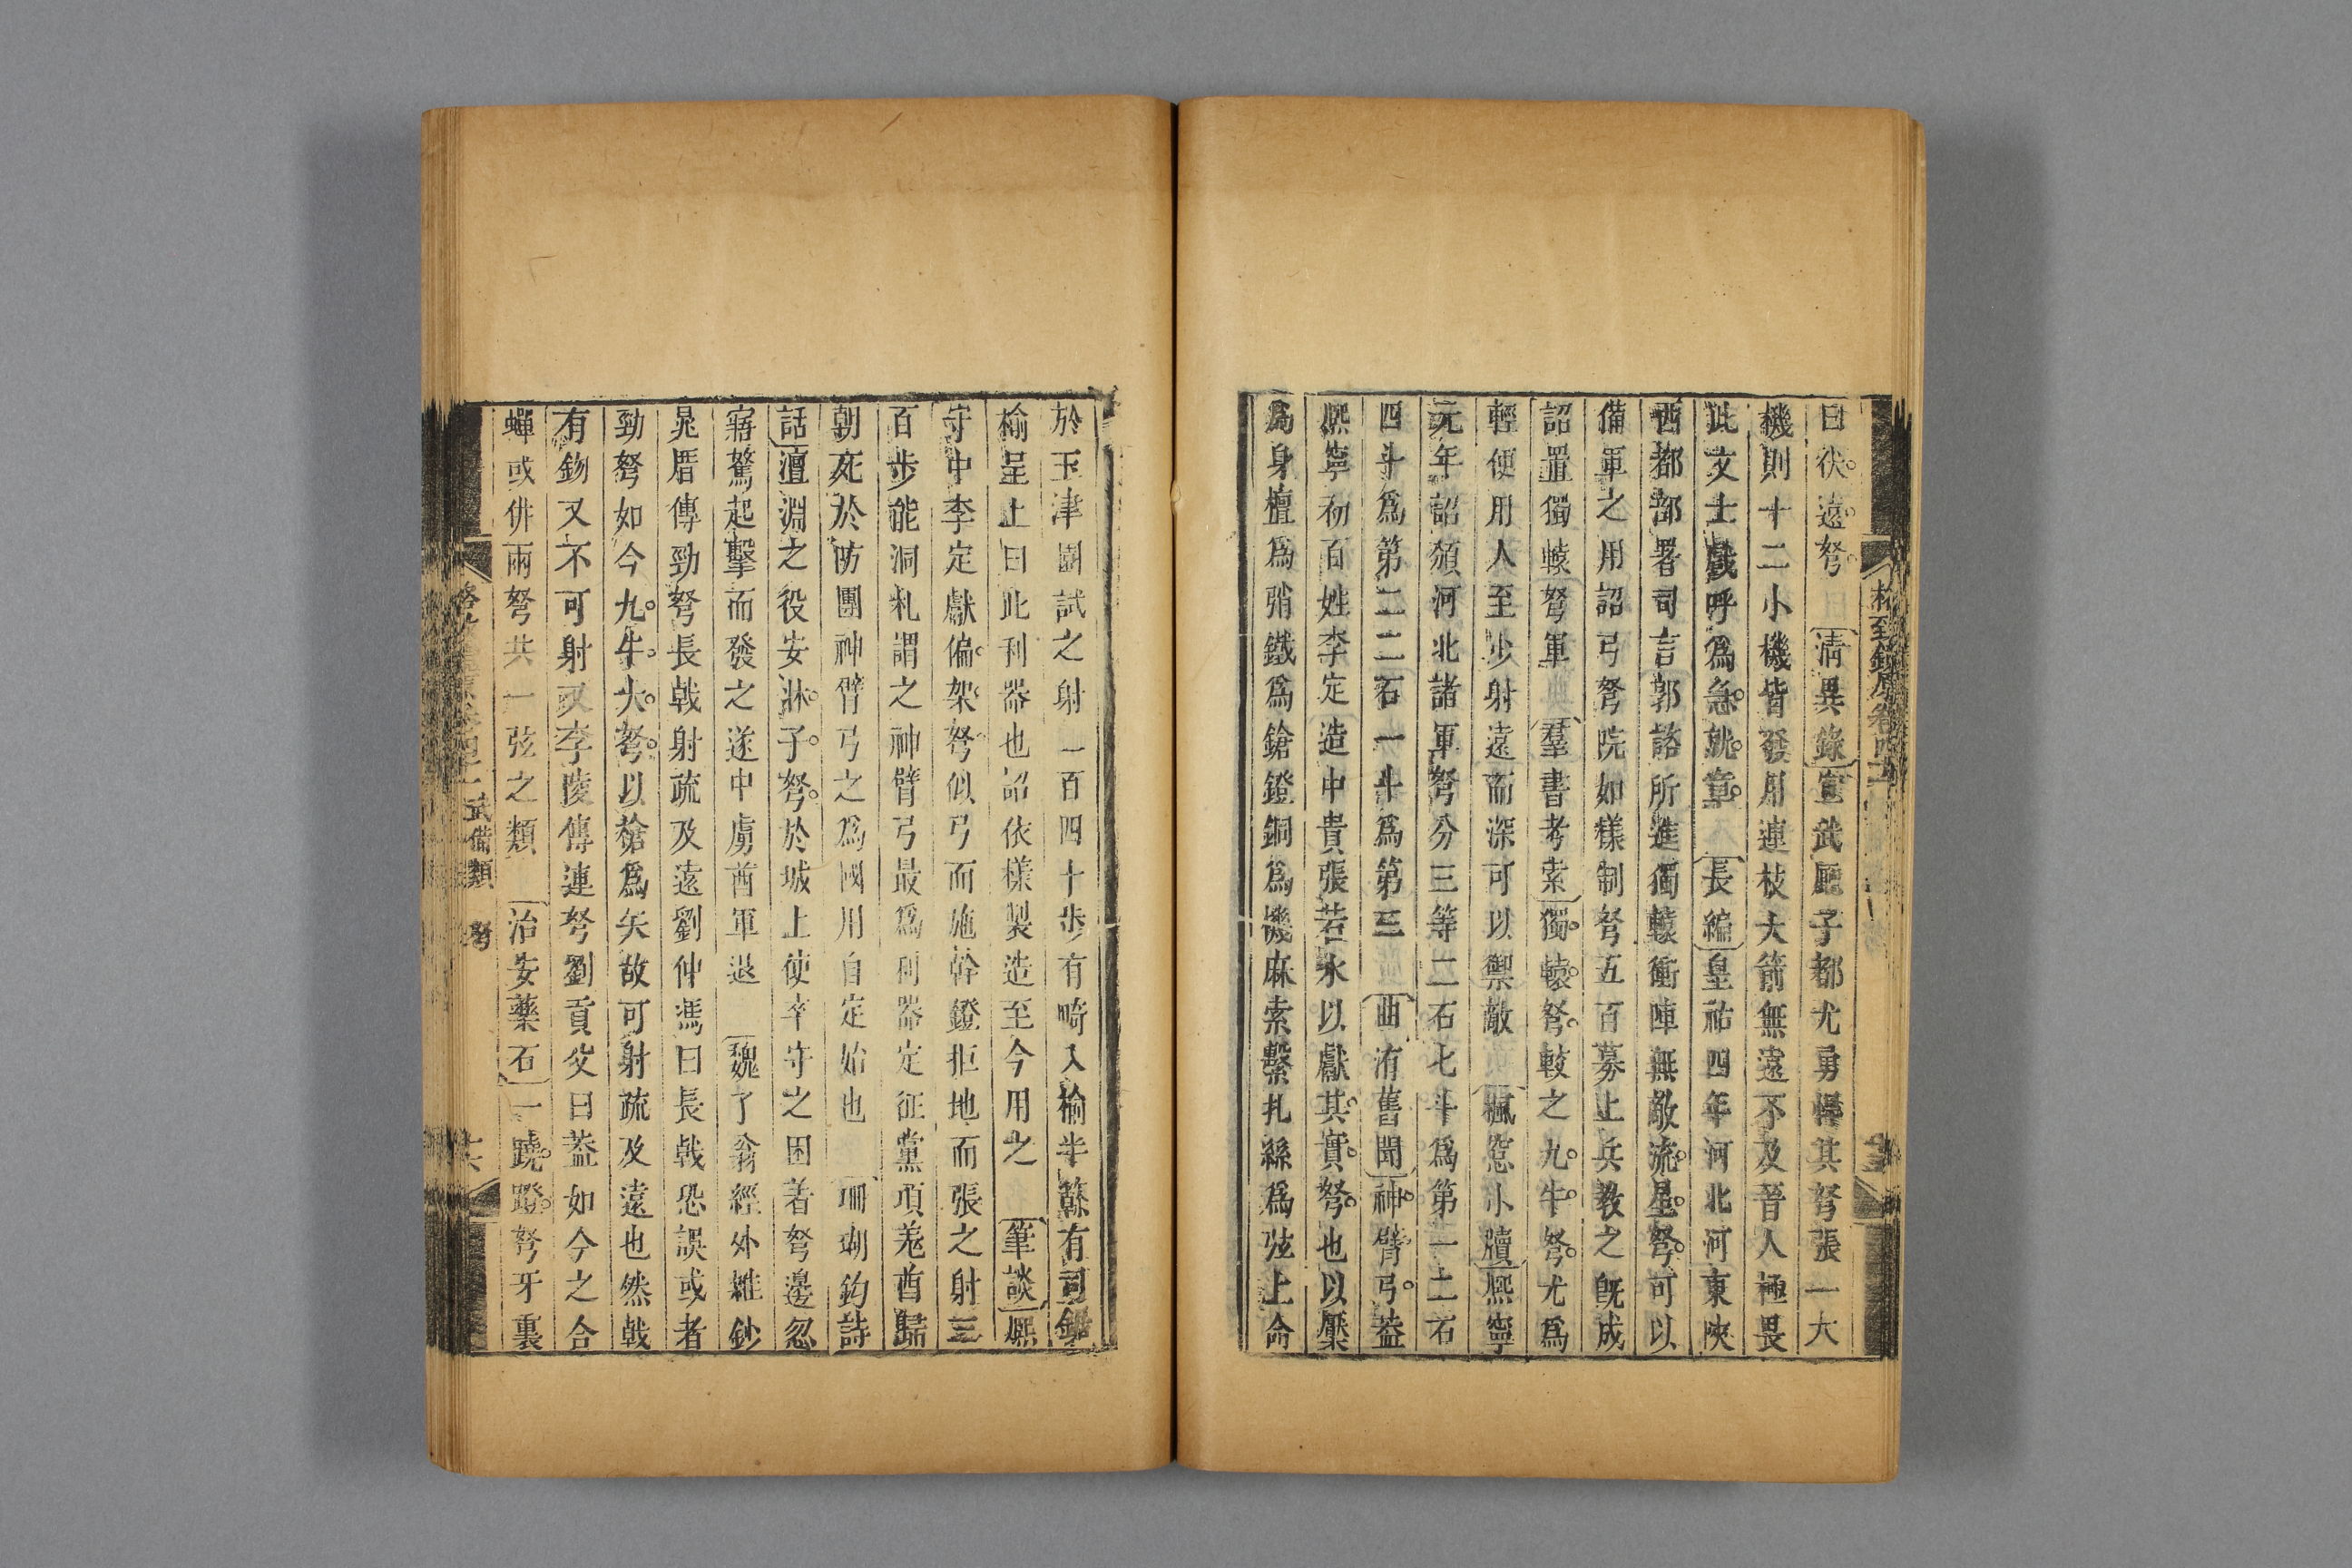 曰伏遠弩 清異錄宣武廳子都尤勇悍其弩張一大
機則十二小機皆發用連枝大箭無遠不及晉人極畏
此文士戲呼爲急就章 長編皇祐四年河北河東陝
西都部署司言郭諮所進獨轅衝陣無敵流星弩可以
備軍之用詔弓弩院如樣制弩五百募止兵教之旣成
詔置獨轅弩軍 羣書考索獨轅弩較之九牛弩尤爲
輕便用人至少射遠而深可以禦敵 楓窓小牘熈寧
元年詔頒河北諸軍弩分三等二石七斗爲第一二石
四斗爲第二二石一斗爲第三 曲洧舊聞神臂弓葢
熈寧初百姓李定造中貴張若水以獻其實弩也以檿
爲身檀爲弰鐵爲鎗鐙銅爲機麻索繫扎絲爲弦上命
於玉津園試之射一百四十步有畸入榆半簳有司鋸
榆呈上曰此利器也詔依樣製造至今用之 筆談熈
寧中李定獻偏架弩似弓而施幹鐙拒地而張之射三
百步能洞札謂之神臂弓最爲利器定征黨項羗酋歸
朝死於防團神臂弓之爲國用自定始也 珊瑚鈎詩
話澶淵之役安牀子弩於城上使卒守之困著弩邊忽
寤驚起擊而發之遂中虜酋軍退 魏了翁經外雜鈔
晁厝傳勁弩長戟射疏及遠劉仲馮曰長戟恐誤或者
勁弩如今九牛大弩以槍爲矢故可射疏及遠也然戟
有鉤又不可射又李陵傳連弩劉貢父曰葢如今之合
蟬或併兩弩共一弦之類 治安藥石一蹺蹬弩牙裏
武備類 弩